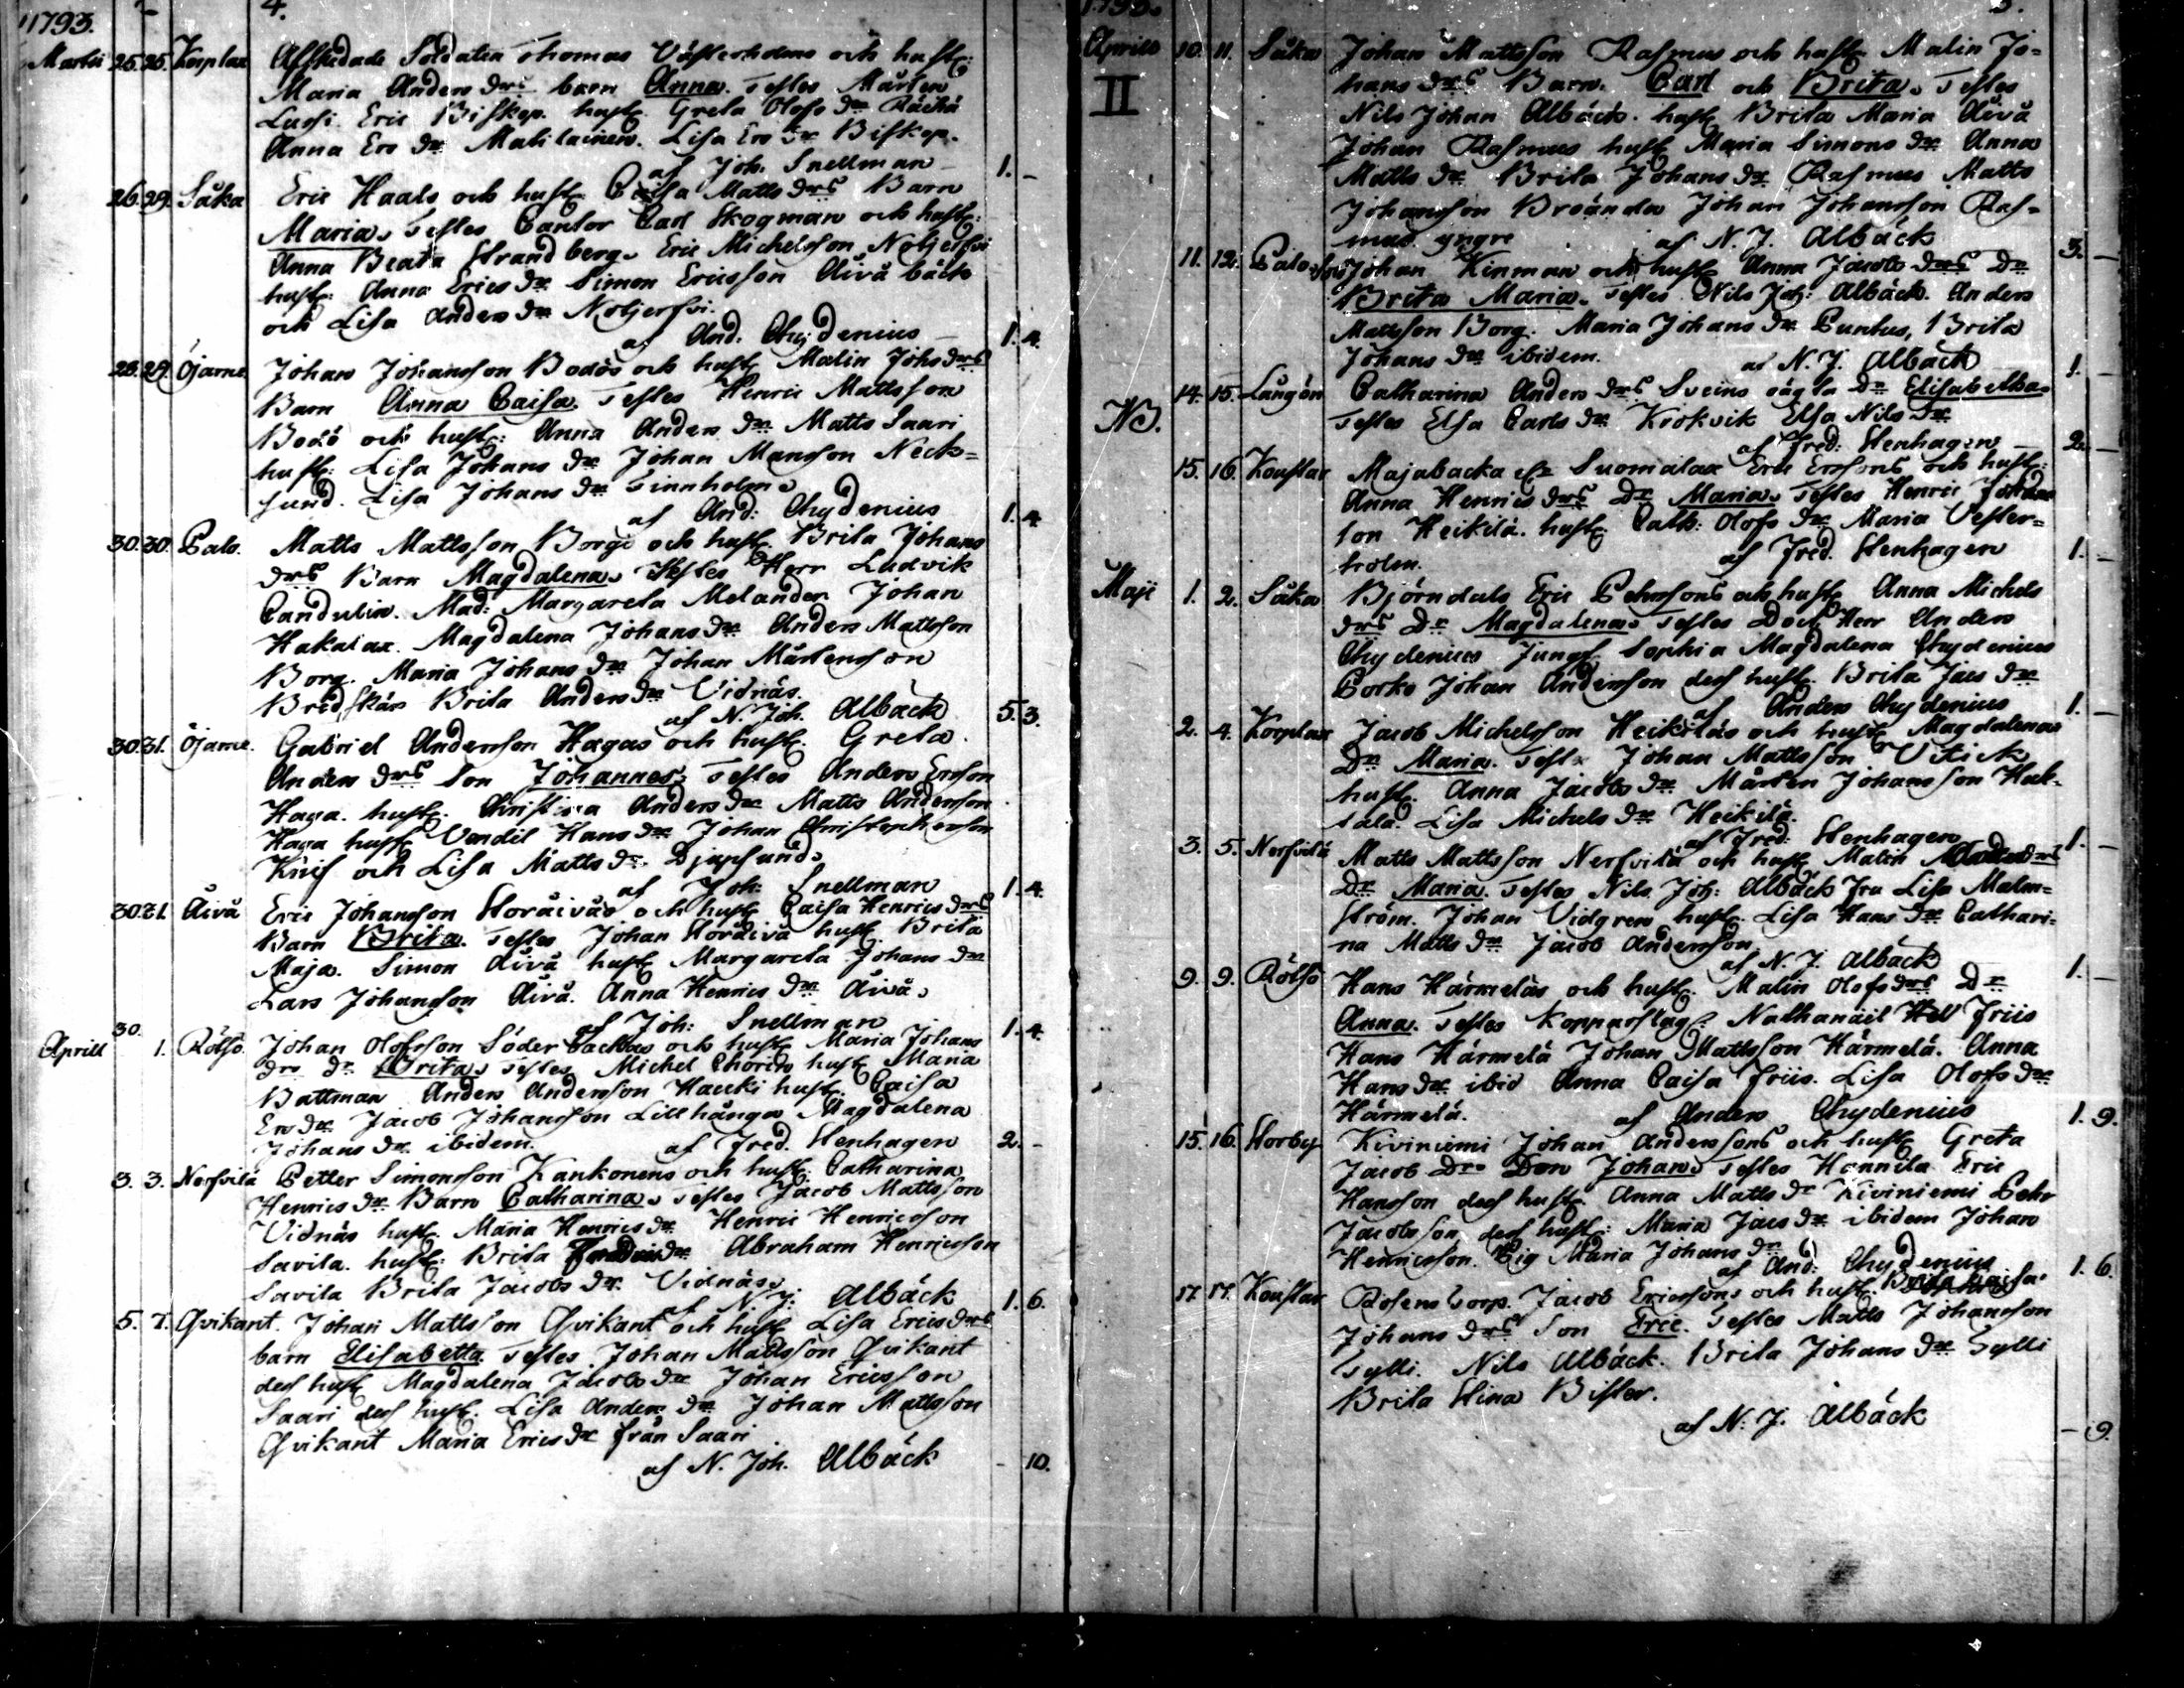 1793.
4.
Martii 25. 25. Korplax Afskedade Soldaten Thomas Västerholms och hust:
Maria Anders drs barn Anna. Testes Mårten
Lussi. Eric Biskop. hust. Greta Olofs dr Räckä
Anna Ers dr Matilainen. Lisa Ers dr Biskop.
af Joh. Snellman 1. -
26. 29. Såka Eric Haals och hust. Caisa Matts drs Barn
Maria. Testes Cantor Carl Skogman och hust:
Anna Beata Strandberg. Eric Michelsson
hust: Anna Erics dr Simon Ericsson Åivå bäck
och Lisa Anders dr
af And: Chydenius 1. 4.
28. 29. Öjarne Johan Johansson Bodös och hust Malin Johs drs
Barn Anna Caisa. Testes Henric Mattsson
Bodö och hust: Anna Anders dr Matts Saari
hust: Lisa Johans dr Johan Mansson Neck-
sund. Lisa Johans dr Finnholm.
af And: Chydenius 1. 4.
30. 30. Palo. Matts Mattsson Borgs och hust. Brita Johans
drs Barn Magdalena. Testes Herr Ludvik
Candulin. Mad: Margareta Melander Johan
Hakalax. Magdalena Johans dr Anders Mattsson
Borg. Maria Johans dr Johan Mårtensson
Bredskär Brita Anders dr Vidnäs.
af N. Joh. Albäck 5. 3.
30. 31. Öjarne. Gabriel Andersson Hagas och hust. Greta
Anders drs Son Johannes. Testes Anders Ersson
Haga. hust. Christina Anders dr Matts Andersson
Haga hust Vendil Hans dr Johan Christophersson
Knif och Lisa Matts dr Djupsund.
af Joh: Snellman 1. 4.
30. 31. Åivå Eric Johansson Storåivås och hust Caisa Henrics drs
Barn Brita. Testes Johan Storåivå hust. Brita
Maja. Simon Åivå hust Margareta Johans dr
Lars Johansson Åivå. Anna Henrics dr Åivå.
af Joh: Snellman 1. 4.
30.
Aprill 1. Rölsö. Johan Olofsson Söderbackas och hust Maria Johans
drs dr Brita. Testes Michel Thorin hust Maria
Battman Anders Andersson Haucki hust. Caisa
Ers dr Jacob Johansson Lillhånga Magdalena
Johans dr ibidem. af Fred. Stenhagen 2. -
3. 3. Nerfvilä Petter Simonsson Kankonens och hust. Catharina
Henrics dr Barn Catharina. Testes Jacob Mattsson
Vidnäs hust. Maria Henrics dr Henric Henricsson
Savila. hust: Brita Abraham Henricsson
Savila Brita Jacobs dr Vidnäs.
af N. J: Albäck 1. 6.
5. 7. Qvikant. Johan Mattsson Qvikant och hust Lisa Erics drs
barn Elisabetta. Testes Johan Mattsson Qvikant
dess hust Magdalena Jacobs dr Johan Ericsson
Saari dess hust. Lisa Anders dr Johan Mattsson
Qvikant Maria Erics dr från Saari
af N. Joh. Albäck - 10.
1793.
5.
Aprill 10. 11. Såka Johan Mattsson Rasmus och hust. Malin Jo-
II hans drs Barn. Carl och Brita. Testes
Nils Johan Albäck. hust. Brita Maria Åivå
Johan Rasmus hust Maria Simons dr Anna
Matts dr Brita Johans dr Rasmus Matts
Johansson Broända Johan Johansson Ras-
mus yngre af N. J. Albäck 3. -
11. 12. Palo Johan Kinman och hust Anna Jacobs drs Dr
Brita Maria. Testes Nils Joh: Albäck. Anders
Mattsson Borg. Maria Johans dr Puntus, Brita
Johans dr ibidem. af N. J. Albäck 1. -
14. 15. Långön Catharina Anders drs Sveins oägta Dr Elisabetha
NB. Testes Elsa Carls dr Krokvik Elsa Nils dr
af Fred: Stenhagen 2. -
15. 16. Kouslax Majabacka Suomalax Eric Erssons och hust:
Anna Henrics drs Dr Maria. Testes Henric Johans
son Heikilä. hust Cath: Olofs dr Maria Vester-
holm. af Fred. Stenhagen 1. -
Maji 1. 2. Såka Björndals Eric Pehrssons och hust Anna Michels
drs Dr Magdalena. Testes Doct Herr Anders
Chydenius Jungf Sophia Magdalena Chydenius
Porko Johan Andersson dess hust. Brita Jacs dr
af Anders Chydenius 1. -
2. 4. Korplax Jacob Michelsson Heikiläs och hust Magdalenas
Dr Maria. Testes Johan Mattsson Utick
hust. Anna Jacobs dr Mårten Johansson Hak-
sala. Lisa Michels dr Heikilä.
af Fred: Stenhagen 1. -
3. 5. Nerfvilä Matts Mattsson Nerfvilä och hust Malin drs
Dr Maria. Testes Nils Joh: Albäck Fru Lisa Malm-
ström. Johan Vidgren hust. Lisa Hans dr Cathari-
na Matts dr Jacob Andersson
af N. J. Albäck 1. -
9. 9. Rölsö Hans Härmeläs och hust. Malin Olofs drs Dr
Anna. Testes Kopparslag. Nathanäel Friis
Hans Härmelä Johan Mattsson Härmelä. Anna
Hans dr ibid Anna Caisa Friis. Lisa Olofs dr
Härmelä. af Anders Chydenius 1. 9.
15. 16. Storby Kiviniemi Johan Anderssons och hust Greta
Jacobs drs Son Johan. Testes Hannila Eric
Hansson dess hust. Anna Matts dr Kiviniemi Pehr
Jacobsson dess hust: Maria Jacs dr ibidem Johan
Henricsson. Pig Maria Johans dr
af And: Chydenius 1. 6.
17. 17. Kouslax Rosens torp. Jacob Ericssons och hust. Brita Caisa
Johans drs Son Eric. Testes Matts Johansson
Sylli. Nils Albäck. Brita Johans dr Sylli
Brita Stina Bister.
af N. J. Albäck - 9.